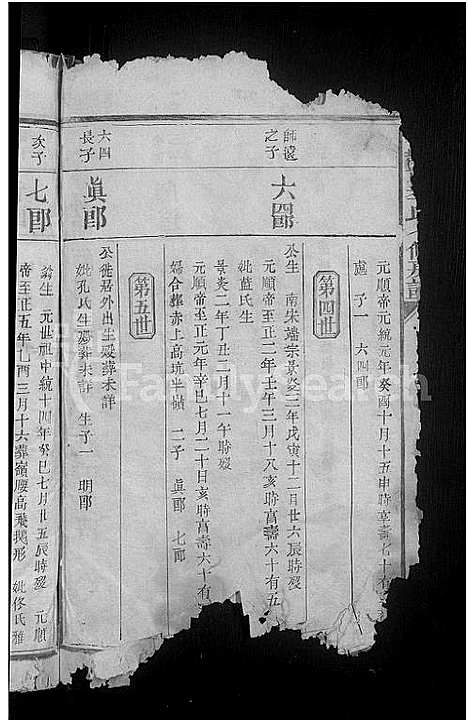 元順帝元統元年癸酉十月十五申時享壽七十有
處 子一 六四郎
第四世
師遠之子
六四郎
公生 南宋端宗景炎三年戊寅十二月廿六辰時歿
元順帝至正二年壬午三月十八亥時享壽六十有五
妣藍氏生
景炎二年丁丑二月十一午時歿
元順帝至正元年辛巳七月二十日亥時享壽六十有
婦合葬赤上高坑半嶺 二子 眞郎 七郎
第五世
六四長子
眞郎
公徙居外出生歿葬未詳
妣孔氏生歿葬未詳 生子一 明郎
次子
七郎
公生 元世祖中統十四年癸巳七月廿五辰時歿 元順
帝至正五年乙酉三月十六葬嶺腰高飛鵝形 妣佟氏雅
FamilySearch